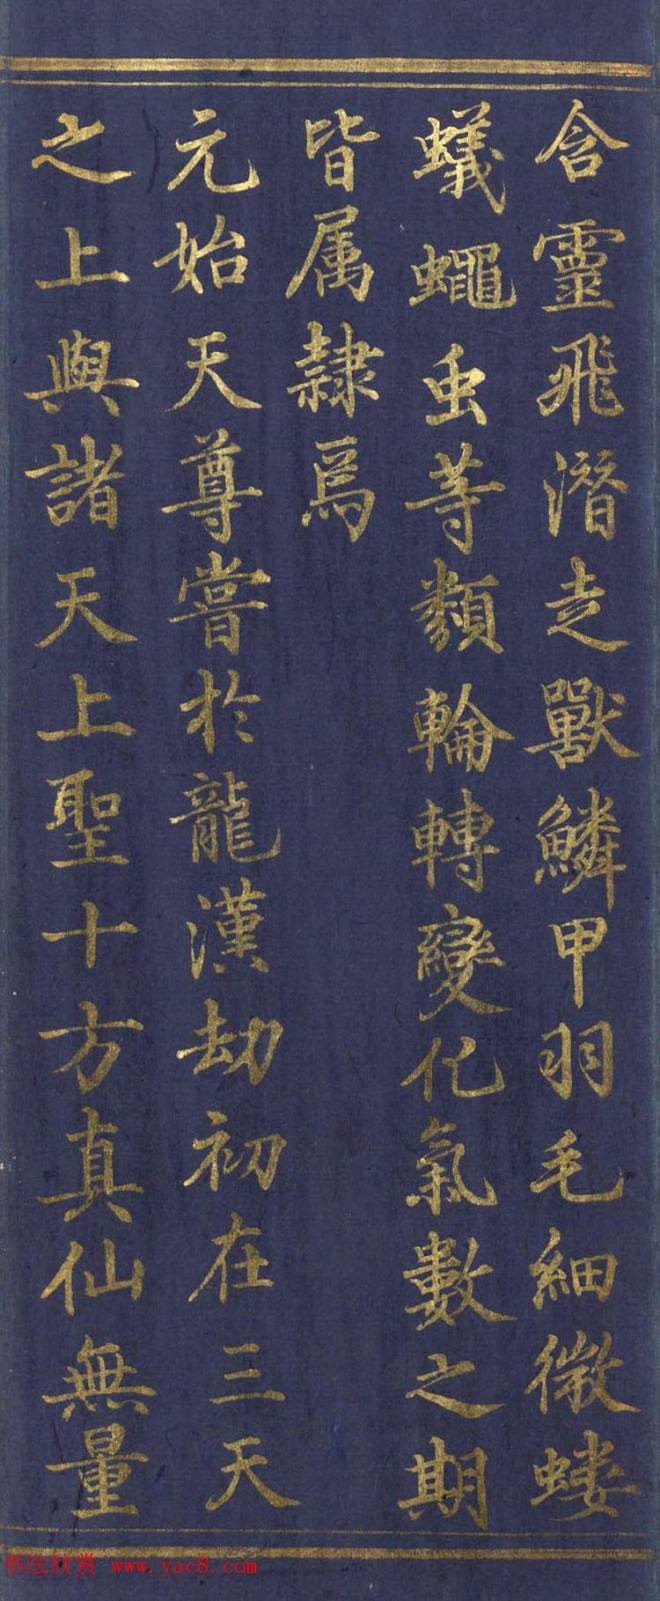 含靈飛潛走獸鱗甲羽毛細微螻
蟻蠅虫等類輪轉變化氣數之期
皆属隸焉
元始天尊嘗於龍漢劫初在三天
之上與諸天上聖十方真仙無量
书法欣赏 www.yac8.com